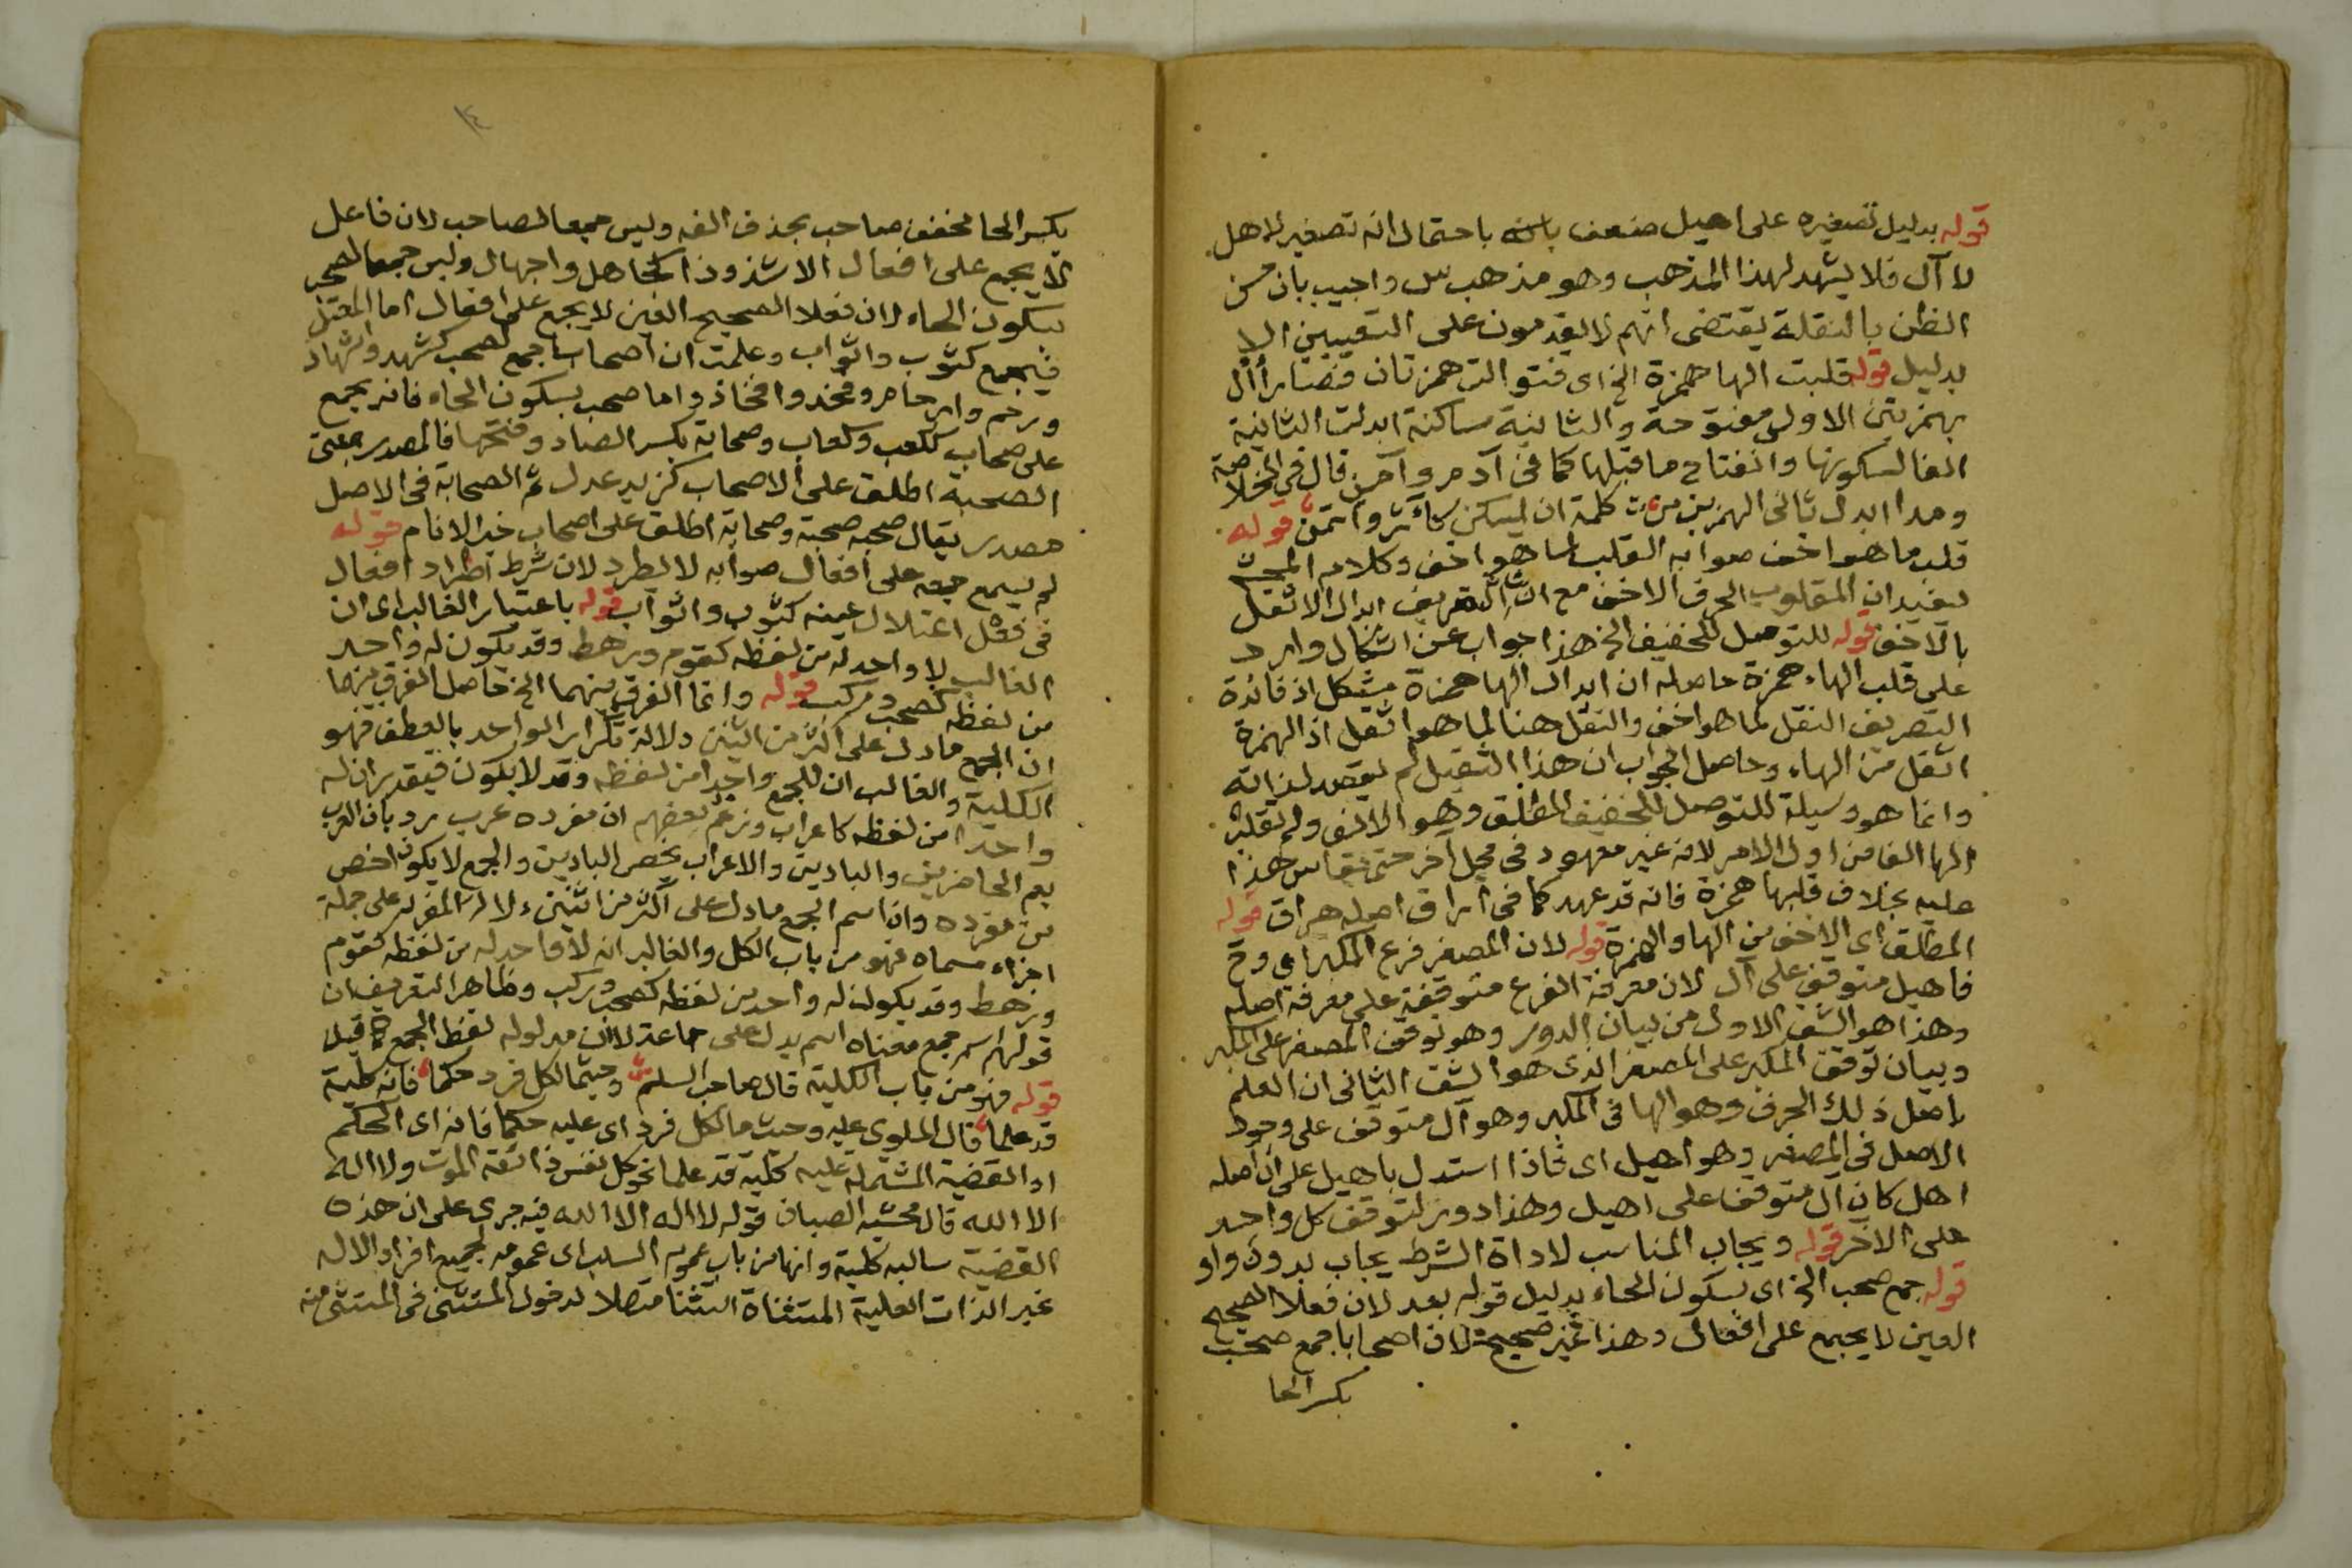 قوله بدليل تصغيره على اهيل ضعف بانه باحتمال انه تصغير لاهل
لا آل فلا يشهد لهذا المذهب وهو مذهب س واجيب بان حسن
الظن بالنقلة يقتضى انهم لا يقدمون على التعيين الا
بدليل قوله قلبت الها همزة الخ اى فتوالت همزتان فصار أأل
بهمزتين الاولى مفتوحة والثانية ساكنة ابدلت الثانية
الفا لسكونها وانفتاح ما قبلها كما فى آدم وآمن قال فى الخلاصة
ومدا ابدل ثانى الهمزين من كلمة ان يسكن كآثر وائتمن قوله
قلب ما هو اخف صوابه القلب لما هو اخف وكلام المحشى
يفيد ان المقلوب الحرف الاخف مع ان التصريف ابدال الاثقل
بالاخف قوله للتوصل للتخفيف الخ هذا جواب عن اشكال وارد
على قلب الهاء همزة حاصله ان ابدال الها همزة مشكل اذ فائدة
التصريف النقل لما هو اخف والنقل هنا لما هو اثقل اذ الهمزة
اثقل من الهاء وحاصل الجواب ان هذا الثقيل لم يقصد لذاته
وانما هو وسيلة للتوصل للتخفيف المطلق وهو الالف ولم تقلب
الها الفا من اول الامر لانه غير معهود فى محل آخر حتى يقاس هذا
عليه بخلاف قلبها همزة فانه قد عهد كما فى اراق اصله هراق قوله
المطلق اى الاخف من الها والهمزة قوله لان المصغر فرع المكبر اى وح
فاهيل متوقف على آل لان معرفة الفرع متوقفة على معرفة اصله
وهذا هو الشق الاول من بيان الدور وهو توقف المصغر على المكبر
وبيان توقف المكبر على المصغر الذى هو الشق الثانى ان العلم
باصل ذلك الحرف وهو الها فى المكبر وهو آل متوقف على وجود
الاصل فى المصغر وهو اهيل اى فاذا استدل باهيل على ان اصله
اهل كان آل متوقف على اهيل وهذا دور لتوقف كل واحد
على الآخر قوله ويجاب المناسب لاداة الشرط يجاب بدون واو
قوله جمع صحب الخ اى بسكون الحاء بدليل قوله بعد لان فعلا الصحيح
العين لا يجمع على افعال وهذا غير صحيح لان اصحابا جمع صحب
بكسر الحا
بكسر الحا مخفف صاحب بحذف الفه وليس جمعا لصاحب لان فاعل
لا يجمع على افعال الا شذوذا كجاهل واجهال وليس جمعا لصحب
بسكون الحاء لان فعلا الصحيح العين لا يجمع على افعال اما المعتل
فيجمع كثوب واثواب وعلمت ان اصحابا جمع لصحب كشهد واشهاد
ورحم وارحام وفخذ وافخاذ واما صحب بسكون الحاء فانه يجمع
على صحاب ككعب وكعاب وصحابة بكسر الصاد وفتحها فالمصدر بمعنى
الصحبة اطلق على الاصحاب كزيد عدل ثم الصحابة فى الاصل
مصدر يقال صحبه صحبة وصحابة اطلق على اصحاب خير الانام قوله
لم يسمع جمعه على افعال صوابه لا يطرد لان شرط اطراد افعال
فى فعل اعتلال عينه كثوب واثواب قوله باعتبار الغالب اى ان
الغالب لا واحد له من لفظه كقوم ورهط وقد يكون له واحد
من لفظه كصحب وركب قوله وانما الفرق بينهما الخ حاصل الفرق بينهما
ان الجمع ما دل على اكثر من اثنين دلالة تكرار الواحد بالعطف فهو
الكلية والغالب ان للجمع واحدا من لفظه وقد لا يكون فيقدر ان له
واحدا من لفظه كاعراب وزعم بعضهم ان مفرده عرب رد بان العرب
يعم الحاضرين والبادين والاعراب يخص البادين والجمع لا يكون اخص
من مفرده وان اسم الجمع ما دل على اكثر من اثنين دلالة المفرد على جملة
اجزاء مسماه فهو من باب الكل والغالب انه لا واحد له من لفظه كقوم
ورهط وقد يكون له واحد من لفظه كصحب وركب وظاهر التعريف ان
قولهم اسم جمع معناه اسم يدل على جماعة لا ان مدلوله لفظ الجمع كما قيل
قوله فهو من باب الكلية قال صاحب السلم وحيثما لكل فرد حكما فانه كلية
قد علما قال الملوى عليه وحيث ما لكل فرد اى عليه حكما فانه اى الحكم
او القضية المشتملة عليه كلية قد علما نحو كل نفس ذائقة الموت ولا اله
الا الله قال محشيه الصبان قوله لا اله الا الله فيه جرى على ان هذه
القضية سالبه كلية وانها من باب عموم السلب اى عمومه لجميع افراد الاله
غير الذات العلية المستثناة استثنا متصلا لدخول المستثنى فى المستثنى منه